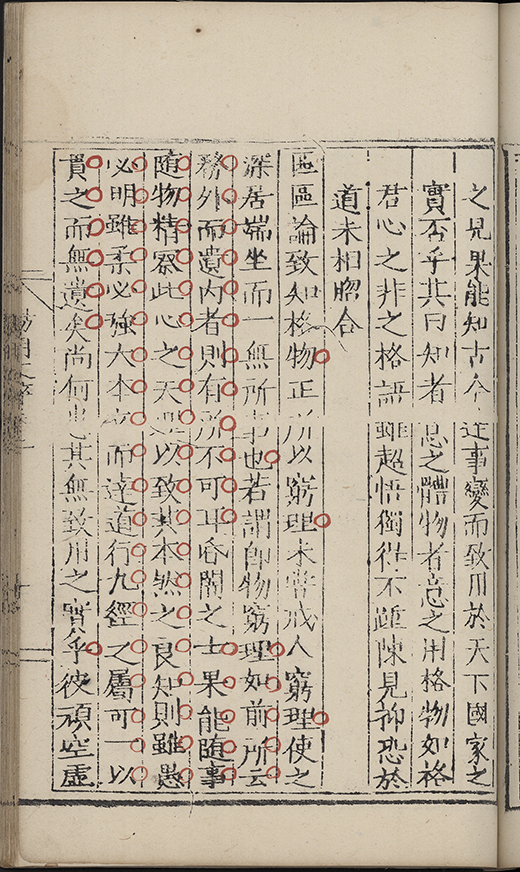 之見果能知古今達事變而致用於天下國家之
實否乎其曰知者意之體物者意之用格物如格
君心之非之格語雖超悟獨得不踵陳見抑恐於
道未相脗合
區區論致知格物正所以窮理未嘗戒人窮理使之
深居端坐而一無所事也若謂即物窮理如前所云
務外而遺內者則有所不可耳昏闇之士果能随事
随物精察此心之天理以致其本然之良知則雖愚
必明雖柔必強大本立而達道行九經之屬可一以
貫之而無遺矣尚何患其無致用之實乎彼頑空虛